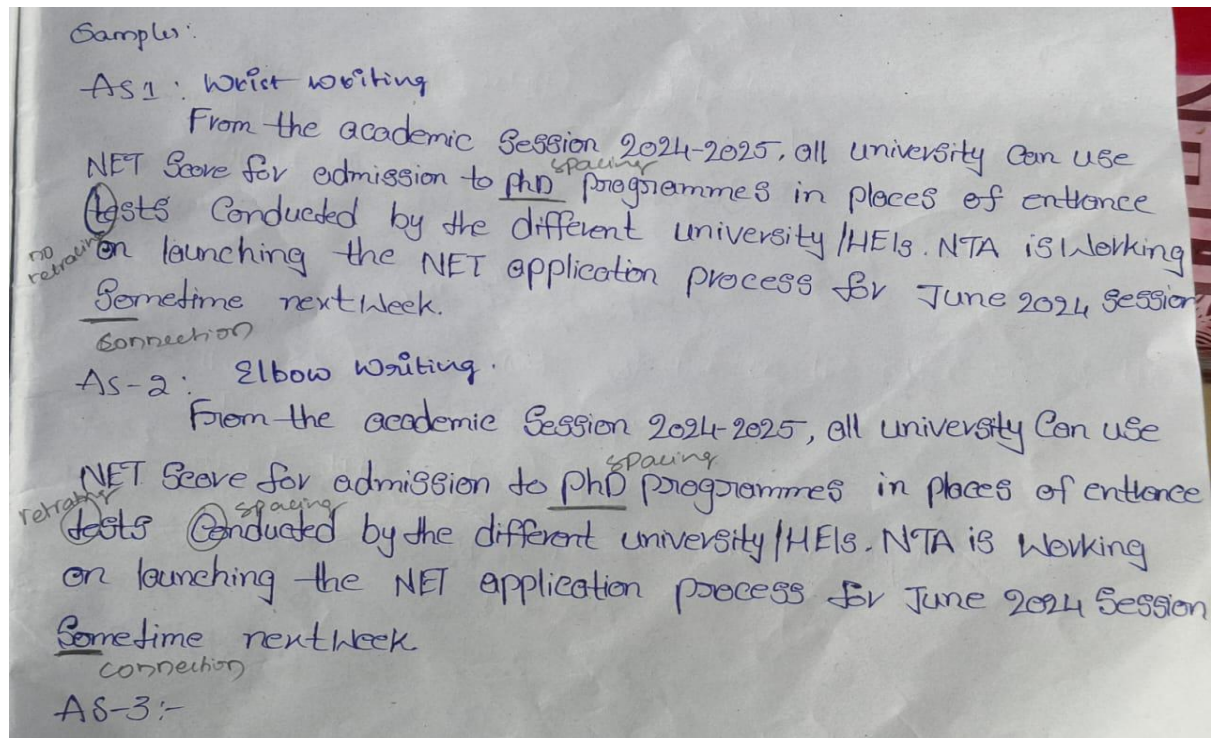 Samples:
AS1: Wrist writing
From the academic Session 2024-2025, all university Can use
spacing
NET Score for admission to phD programmes in places of entrance
tests Conducted by the different university/HEIs. NTA is Working
no retracing
on launching the NET application process for June 2024 Session
Sometime next Week.
Connection
AS-2: Elbow Writing.
From the academic Session 2024-2025, all university Can use
spacing
NET Score for admission to phD programmes in places of entrance
retracing spacing
tests Conducted by the different university/HEIs. NTA is Working
on launching the NET application process for June 2024 Session
Sometime next Week
connection
AS-3:-